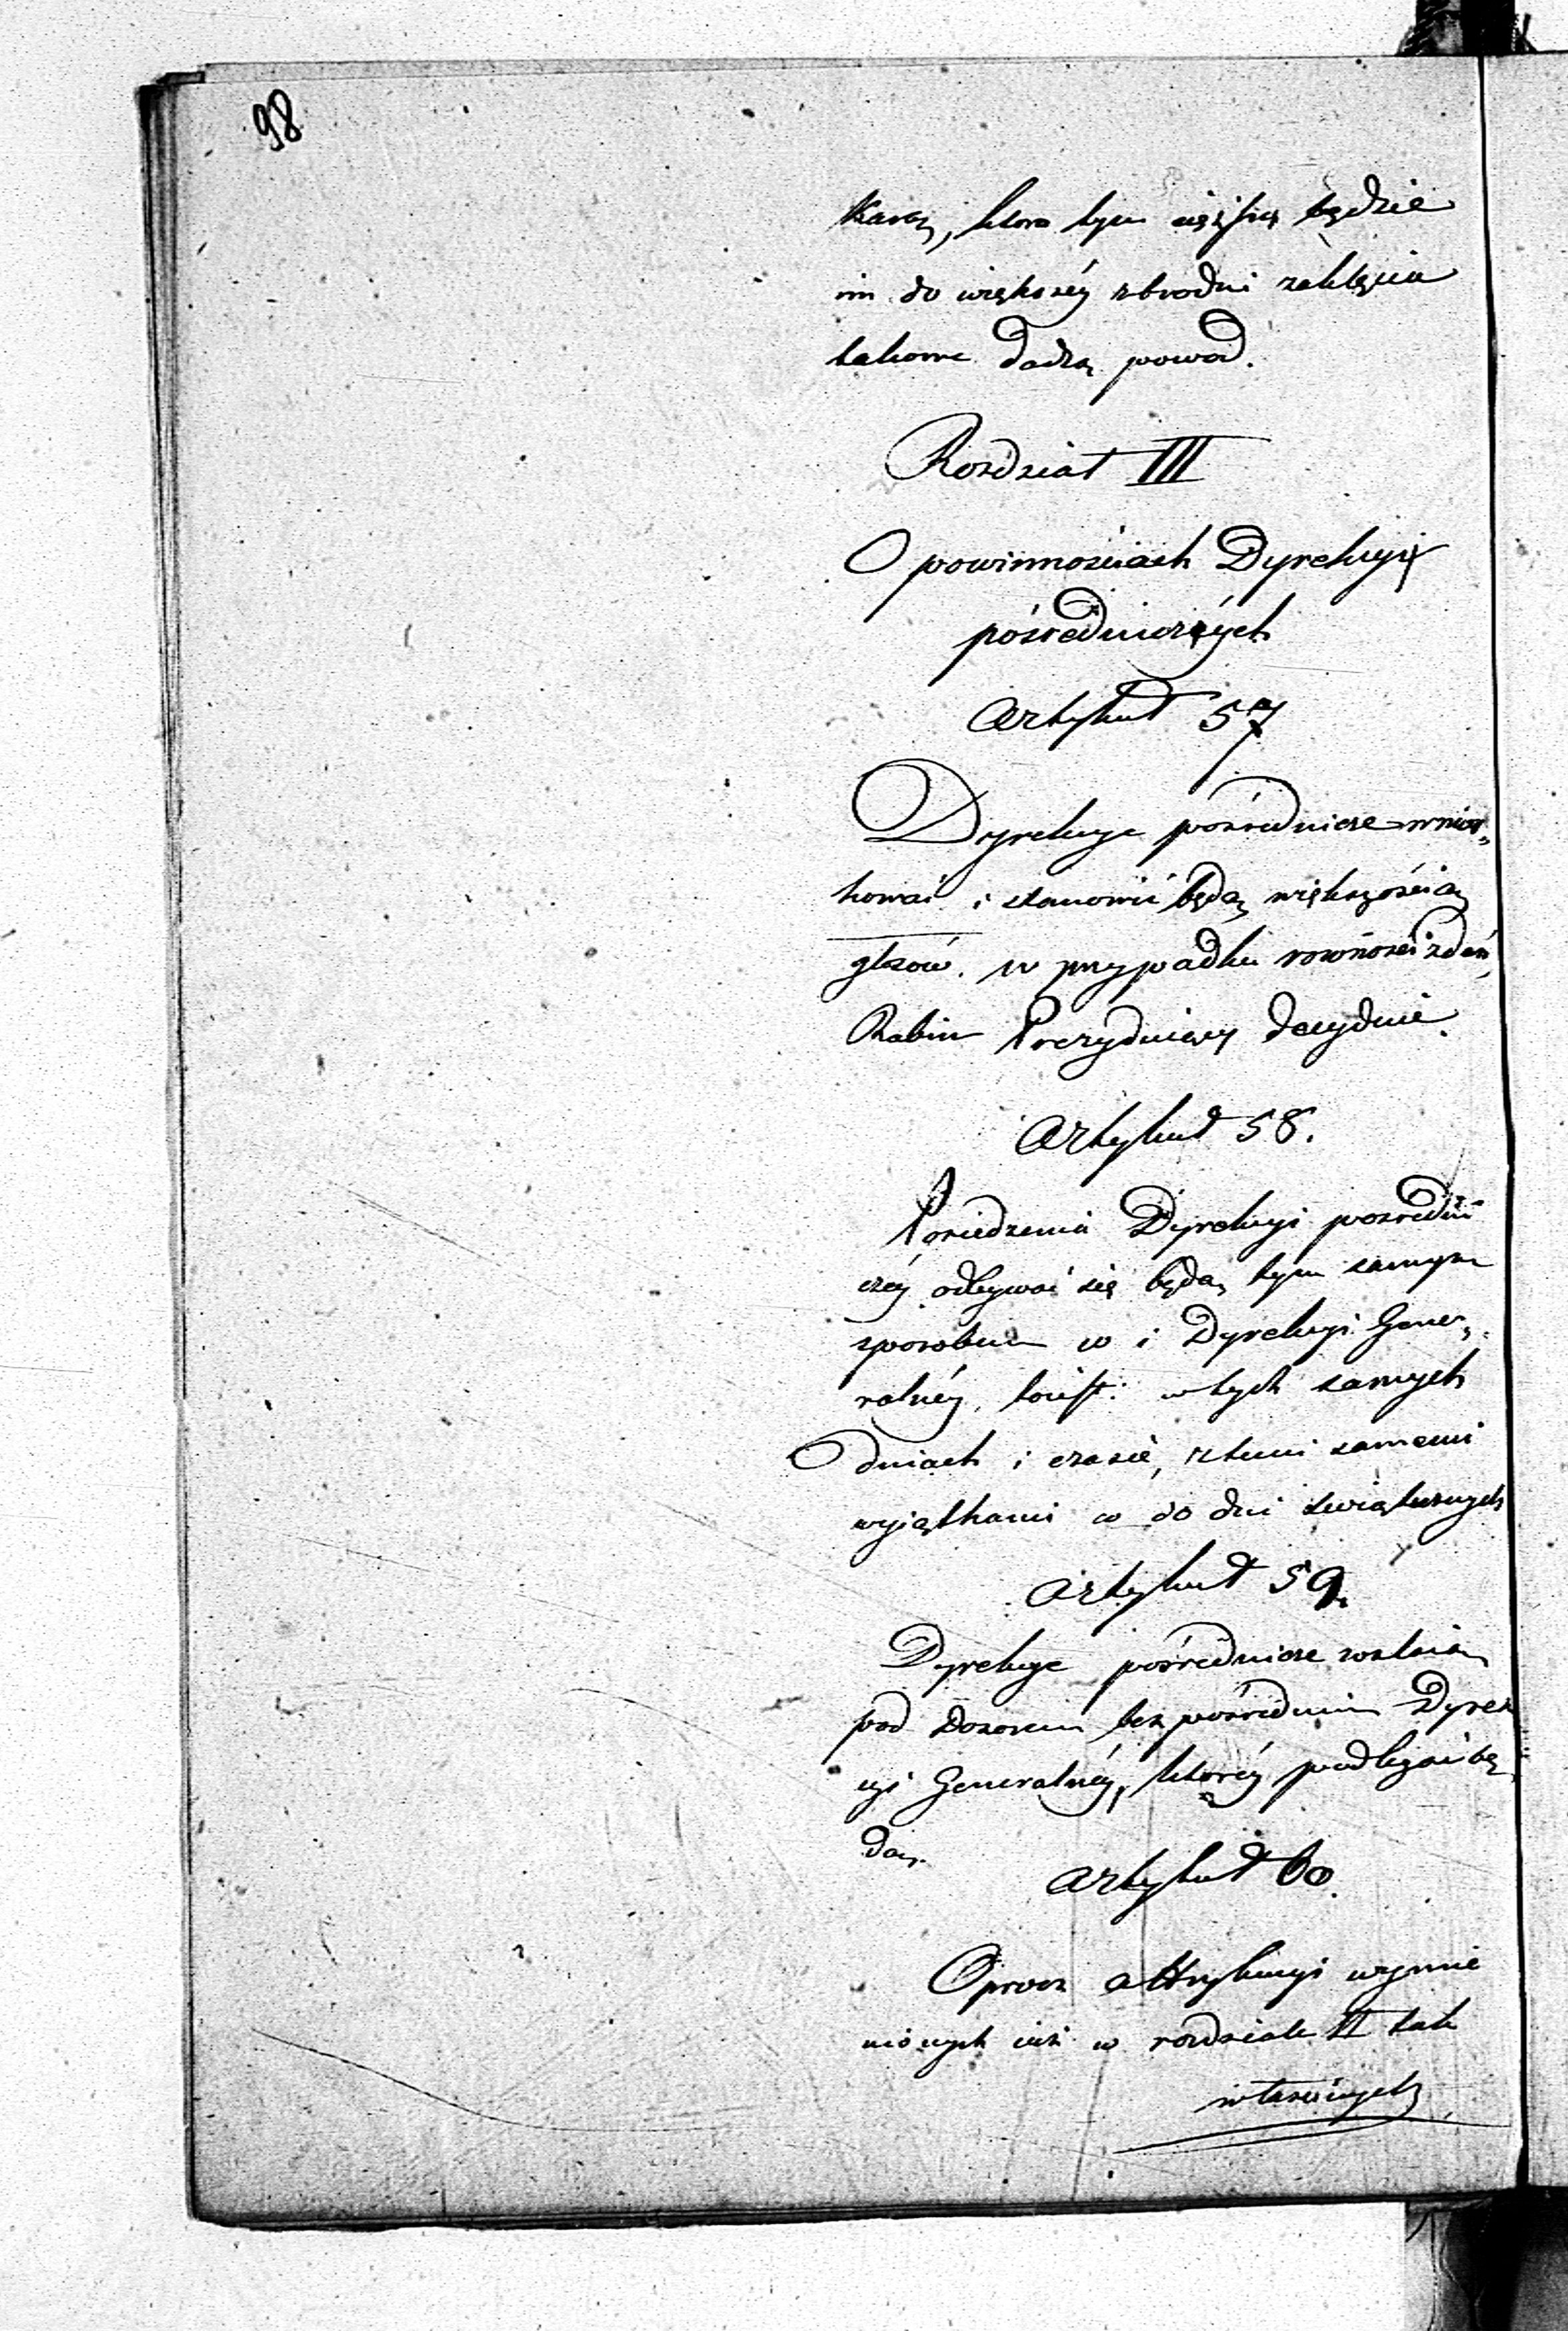 98
Karą, ktora tym cięższą będzie
im do większéy zbrodni zaklęcia
takowe dadzą powod.
Rozdział III
O powinnościach Dyrekcyi
pośredniczych
Artykuł 57
Dyrekcye pośrednicze wnios„
kować i stanowić będą większością
głosów. w przypadku rowności zdań,
Rabin Prezyduiący decyduie.
Artykuł 58.
Posiedzenia Dyrekcyi posredni
czéy odbywać się będą tym samym
sposobem co i Dyrekcyi Gene„
ralnéy, toiest: w tych samych
dniach i czasie, z temi samemi
wyiątkami co do dni świątecznych
Artykuł 59.
Dyrekcye pośrednicze zostaią
pod Dozorem bezpośrednim Dyrek
cyi Generalnéy, ktoréy podlegać bę„
dą.
Artykuł 60.
Oprocz attrybucyi wymie
nionych iuż w rozdziale II tak
właściwych